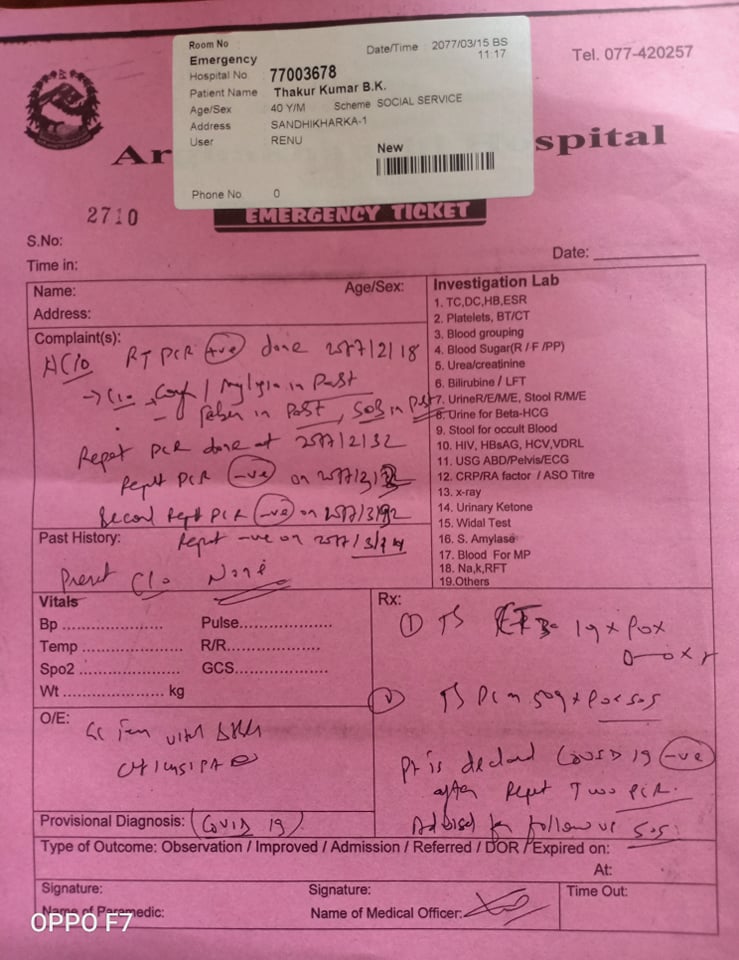 Room No
Emergency
Date/Time 2077/03/15 BS
11:17
Hospital No 77003678
Patient Name Thakur Kumar B.K.
Age/Sex 40 Y/M Scheme SOCIAL SERVICE
Address SANDHIKHARKA-1
User RENU
New
Phone No 0
Tel. 077-420257
Ar spital
EMERGENCY TICKET
2710
S.No:
Time in:
Date:
Name: Age/Sex:
Address:
Complaint(s):
RT PCR +ve done 2077/2/18
in Past
in Past, SOS in Past
Repet PCR done at 2077/2/32
Reput PCR -ve on
Second Rept PCR -ve on
Past History: Reput -ve on
Present C/o None
Investigation Lab
1. TC,DC,HB,ESR
2. Platelets, BT/CT
3. Blood grouping
4. Blood Sugar(R / F /PP)
5. Urea/creatinine
6. Bilirubine / LFT
7. UrineR/E/M/E, Stool R/M/E
8. Urine for Beta-HCG
9. Stool for occult Blood
10. HIV, HBsAG, HCV,VDRL
11. USG ABD/Pelvis/ECG
12. CRP/RA factor / ASO Titre
13. x-ray
14. Urinary Ketone
15. Widal Test
16. S. Amylase
17. Blood For MP
18. Na,k,RFT
19.Others
Vitals
Bp .................. Pulse.....................
Temp .................. R/R.......................
Spo2 .................. GCS.....................
Wt .................. kg
O/E:
Rx:
Pt is declared COVID 19 -ve
after Reput Two PCR.
Advised for follow up SOS.
Provisional Diagnosis: (COVID 19)
Type of Outcome: Observation / Improved / Admission / Referred / DOR / Expired on:
At:
Signature: Signature: Time Out:
Name of Paramedic: Name of Medical Officer:
OPPO F7